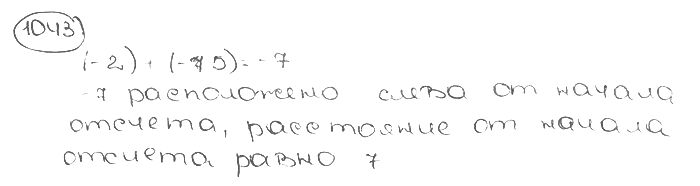 1043
(-2) + (-5) = -7
-7 расположено слева от начала
отсчета, расстояние от начала
отсчета равно 7